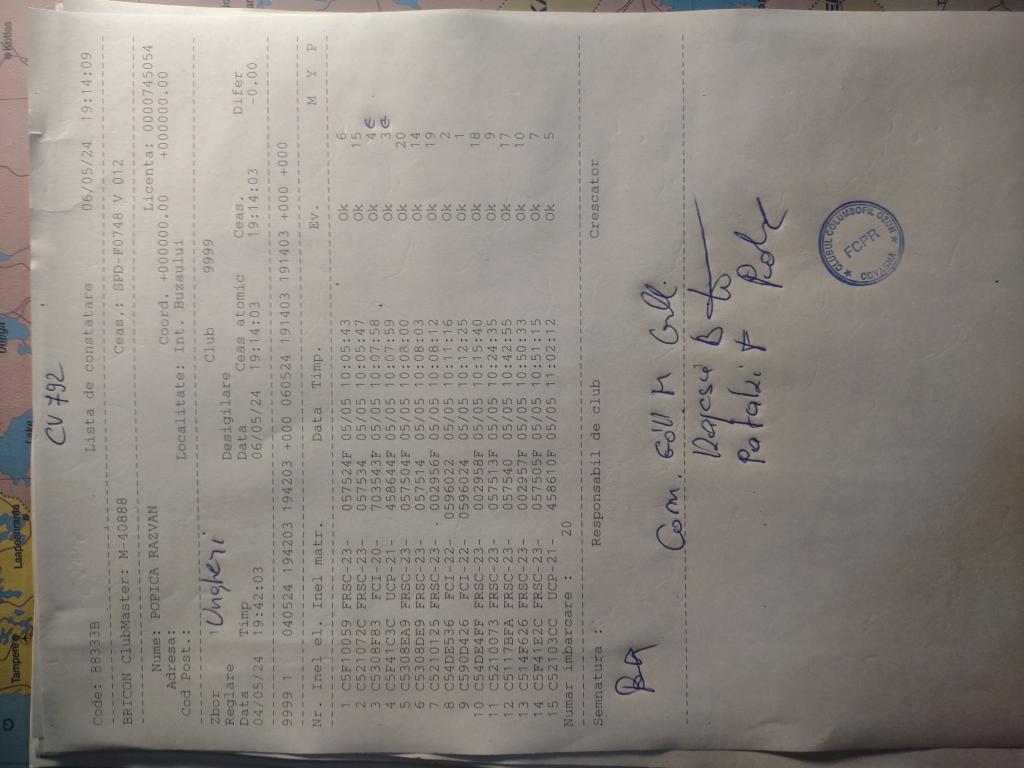 CV 792
Code: 88333B Lista de constatare 06/05/24 19:14:09
BRICON ClubMaster: M-40888 Ceas.: SPD-F0748 V 012
Nume: POPICA RAZVAN Licenta: 0000745054
Adresa: Coord. +000000.00 +0000000.00
Cod Post.: Localitate: Int. Buzaului
Zbor 1 Ungheni Club 9999
Reglare Desigilare
Data Timp Data Ceas atomic Ceas. Difer
04/05/24 19:42:03 06/05/24 19:14:03 19:14:03 -0.00
9999 1 040524 194203 194203 +000 060524 191403 191403 +000 +000
Nr. Inel el. Inel matr. Data Timp. Ev. M Y P
1 C5F10059 FRSC-23- 057524F 05/05 10:05:43 Ok 6
2 C521072C FRSC-23- 057534 05/05 10:05:47 Ok 15
3 C5308F83 FCI-20- 703543F 05/05 10:07:58 Ok 4
4 C5F41C3C UCP-21- 458644F 05/05 10:07:59 Ok 3
5 C5308EA9 FRSC-23- 057504F 05/05 10:08:00 Ok 20
6 C5308DE9 FRSC-23- 057514 05/05 10:08:03 Ok 14
7 C5210125 FRSC-23- 002956F 05/05 10:08:12 Ok 19
8 C54DE536 FCI-22- 0596022 05/05 10:11:16 Ok 2
9 C590D426 FCI-22- 0596024 05/05 10:12:25 Ok 1
10 C54DE4FF FRSC-23- 002958F 05/05 10:15:40 Ok 18
11 C5210073 FRSC-23- 057513F 05/05 10:24:35 Ok 9
12 C5117BFA FRSC-23- 057540 05/05 10:42:55 Ok 17
13 C514F626 FRSC-23- 002957F 05/05 10:50:33 Ok 10
14 C5F41E2C FRSC-23- 057505F 05/05 10:51:15 Ok 7
15 C52103CC UCP-21- 458610F 05/05 11:02:12 Ok 5
Numar imbarcare : 20
Semnatura : Responsabil de club Crescator
Com.
CLUBUL COLUMBOFIL OZUN
FCPR
COVASNA
Tampere
Laapeenranta
Kotlas